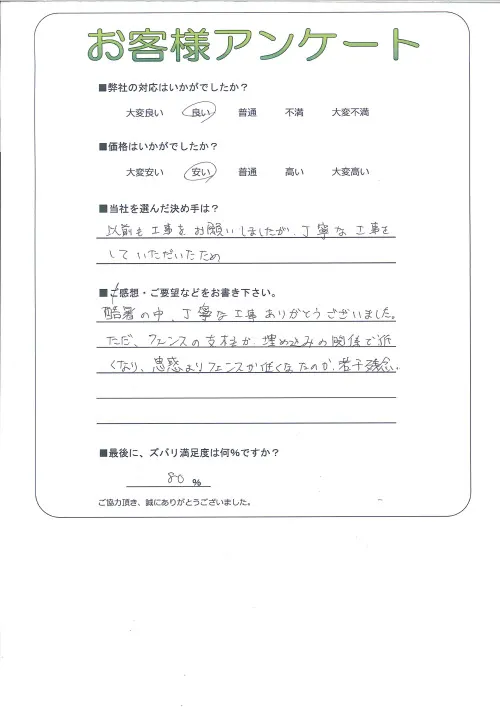 お客様アンケート
■弊社の対応はいかがでしたか？
大変良い 良い 普通 不満 大変不満
■価格はいかがでしたか？
大変安い 安い 普通 高い 大変高い
■当社を選んだ決め手は？
以前も工事をお願いしましたが、丁寧な工事を
していただいたため
■ご感想・ご要望などをお書き下さい。
酷暑の中、丁寧な工事ありがとうございました。
ただ、フェンスの支柱が、埋め込みの関係で低
くなり、よりフェンスが低くなったのが、若干残念。
■最後に、ズバリ満足度は何%ですか？
80 %
ご協力頂き、誠にありがとうございました。